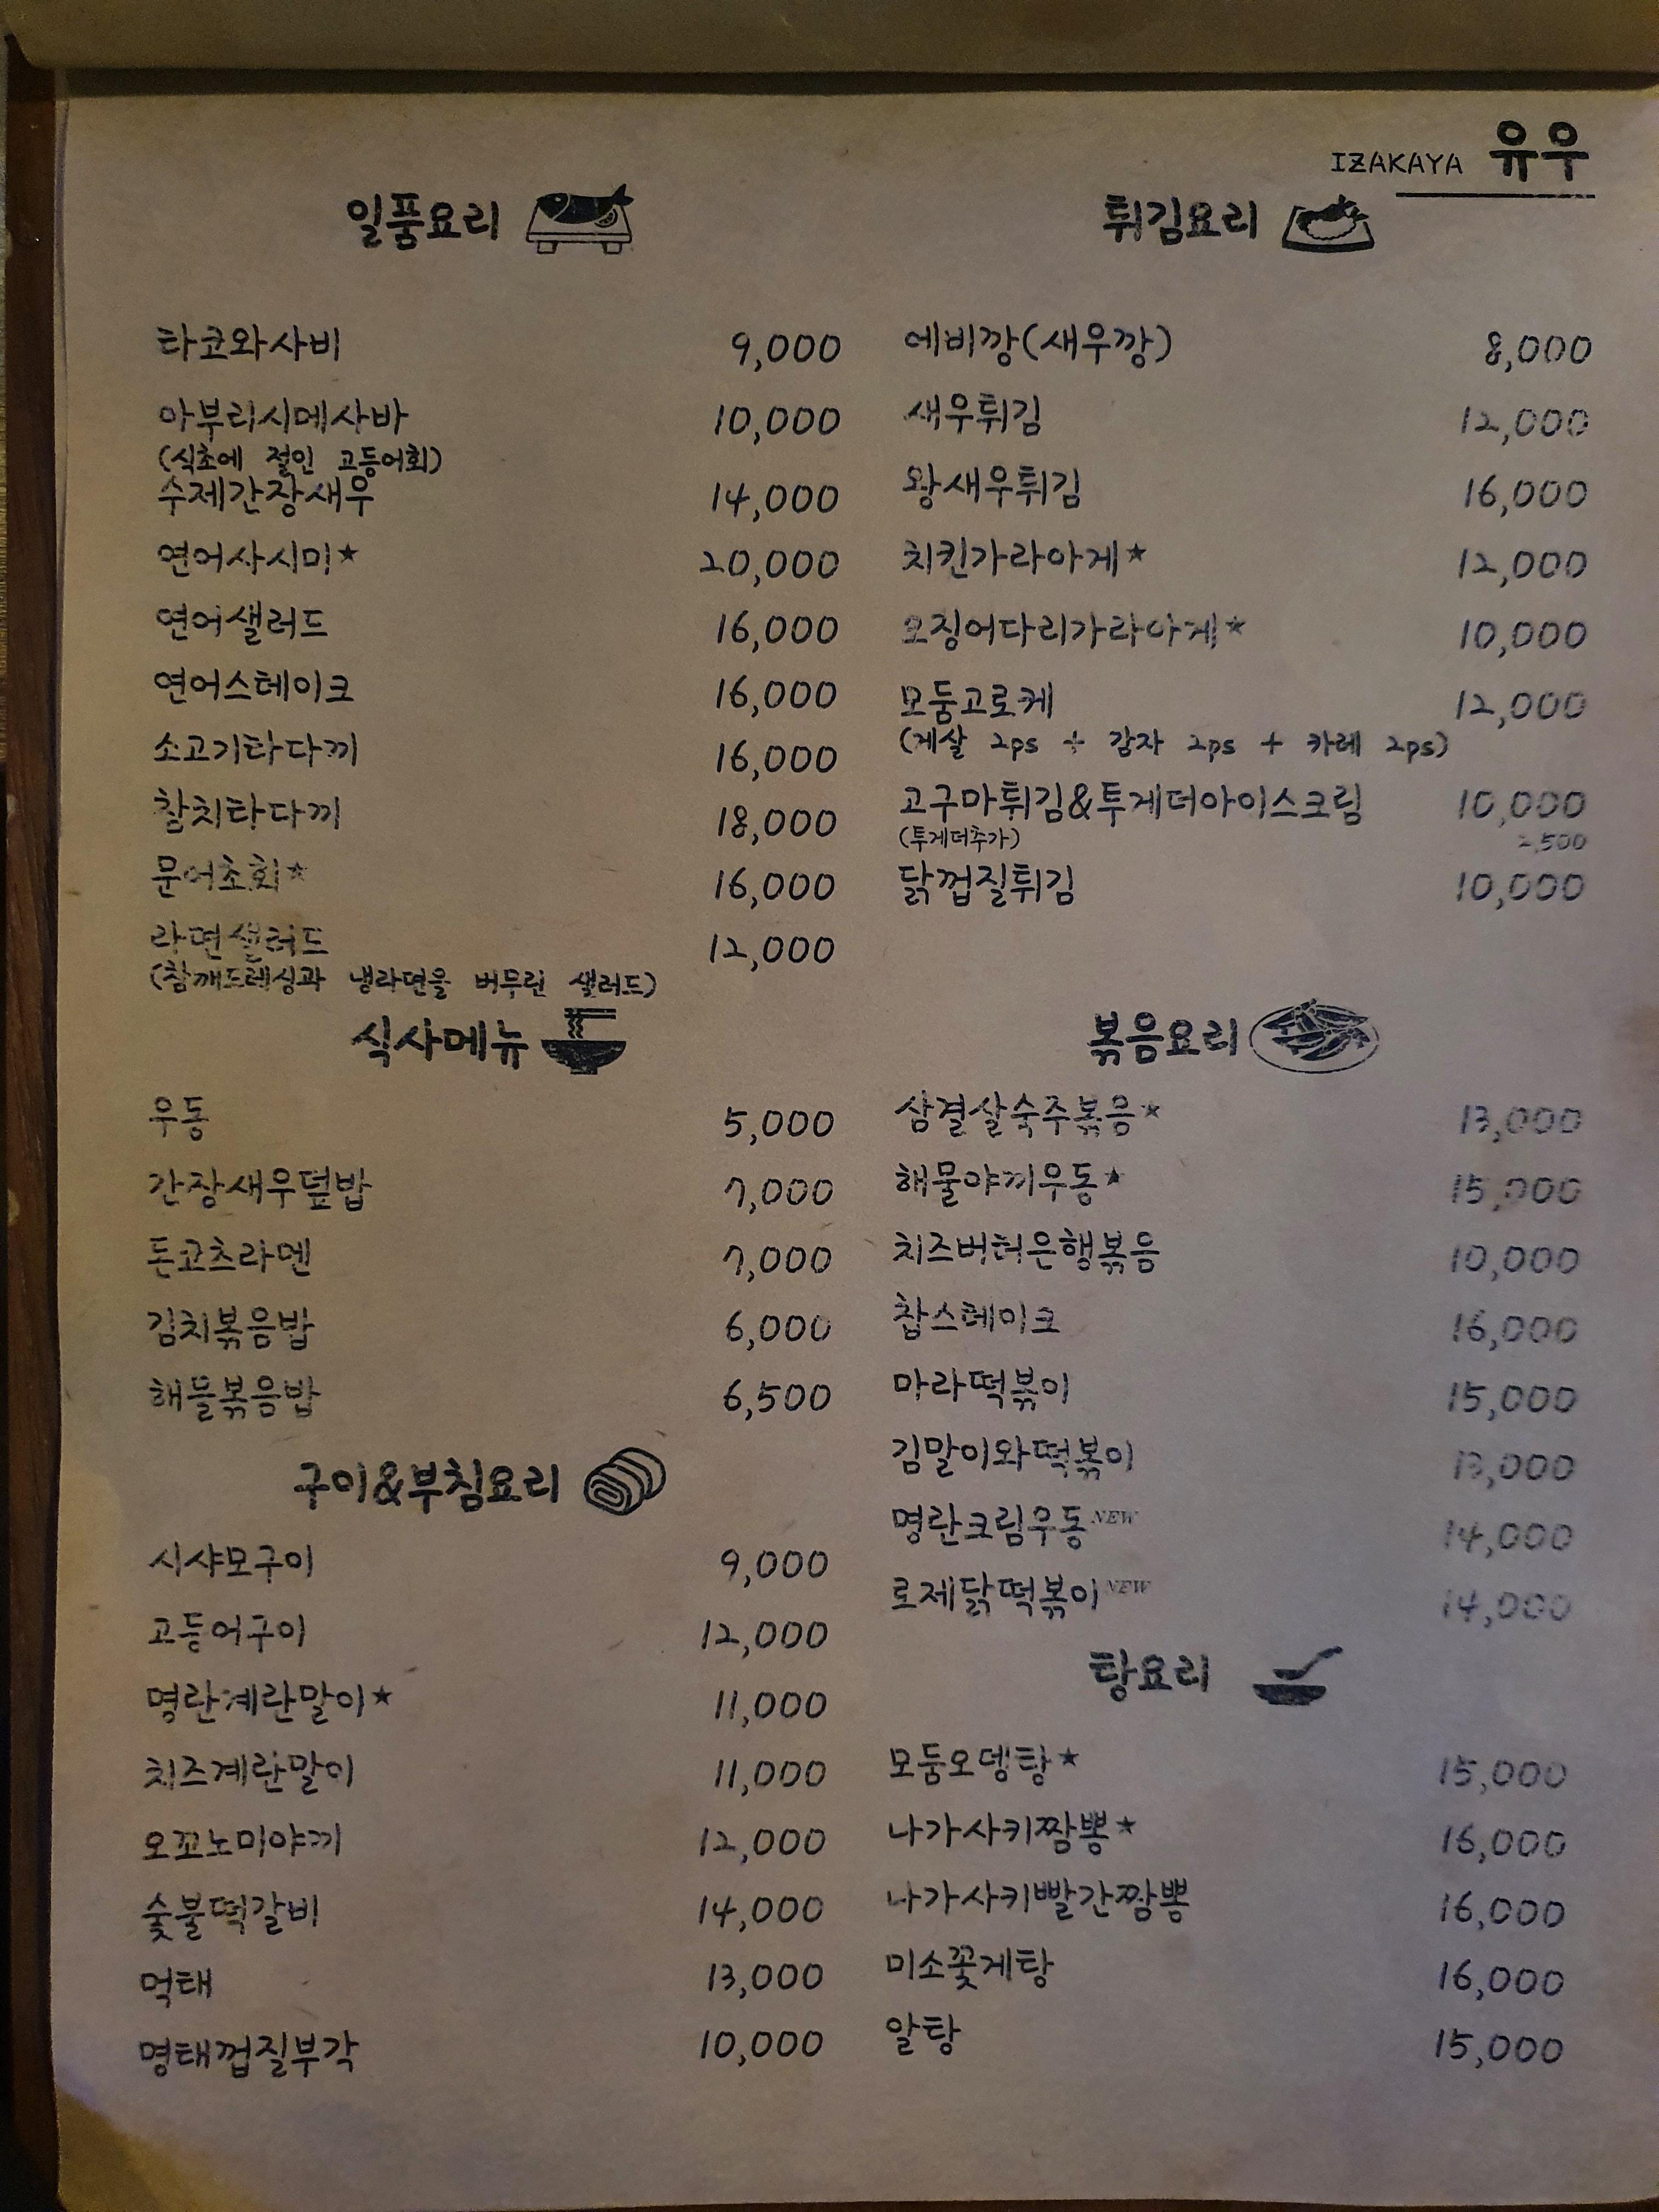 IZAKAYA 유우
일품요리
타코와사비 9,000
아부리시메사바 10,000
(식초에 절인 고등어회)
수제간장새우 14,000
연어사시미★ 20,000
연어샐러드 16,000
연어스테이크 16,000
소고기타다끼 16,000
참치타다끼 18,000
문어초회★ 16,000
라면샐러드 12,000
(참깨드레싱과 냉라면을 버무린 샐러드)
식사메뉴
우동 5,000
간장새우덮밥 7,000
돈코츠라멘 7,000
김치볶음밥 6,000
해물볶음밥 6,500
구이&부침요리
시샤모구이 9,000
고등어구이 12,000
명란계란말이★ 11,000
치즈계란말이 11,000
오꼬노미야끼 12,000
숯불떡갈비 14,000
먹태 13,000
명태껍질부각 10,000
튀김요리
에비깡(새우깡) 8,000
새우튀김 12,000
왕새우튀김 16,000
치킨가라아게★ 12,000
오징어다리가라아게★ 10,000
모둠고로케 12,000
(게살 2ps + 감자 2ps + 카레 2ps)
고구마튀김&투게더아이스크림 10,000
(투게더추가) 2,500
닭껍질튀김 10,000
볶음요리
삼결살숙주볶음★ 13,000
해물야끼우동★ 15,000
치즈버터은행볶음 10,000
찹스테이크 16,000
마라떡볶이 15,000
김말이와떡볶이 13,000
명란크림우동NEW 14,000
로제닭떡볶이NEW 14,000
탕요리
모둠오뎅탕★ 15,000
나가사키짬뽕★ 16,000
나가사키빨간짬뽕 16,000
미소꽃게탕 16,000
알탕 15,000